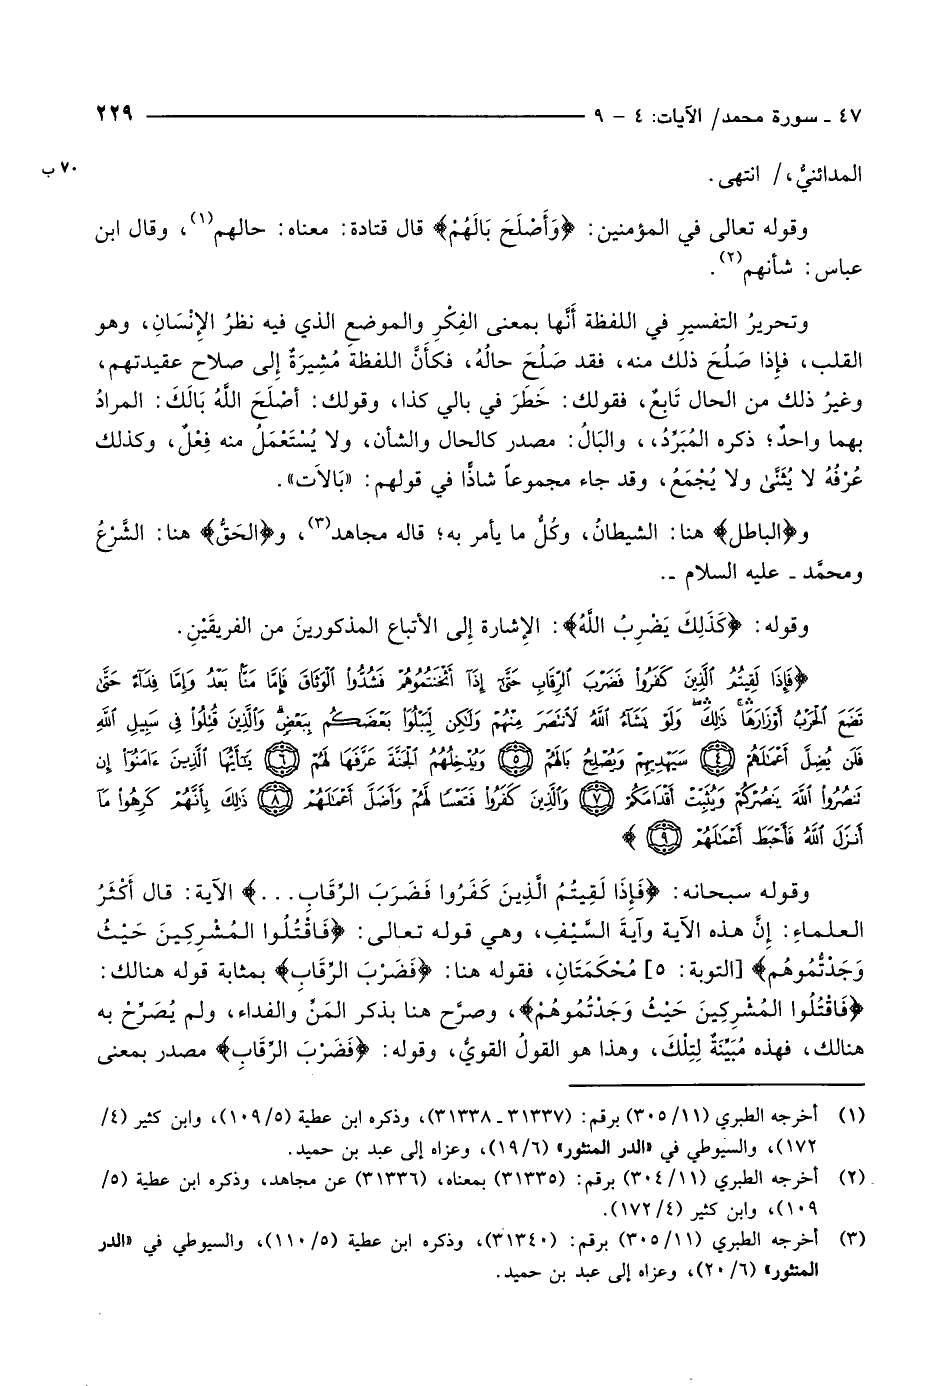 ٤٧ ـ سورة محمد/ الآيات: ٤ - ٩ ٢٢٩
المدائنيُّ،/ انتهى. ٧٠ ب
وقوله تعالى في المؤمنين: ﴿وَأَصْلَحَ بَالَهُمْ﴾ قال قتادة: معناه: حالهم(١)، وقال ابن
عباس: شأنهم(٢).
وتحريرُ التفسيرِ في اللفظة أَنَّها بمعنى الفِكْرِ والموضعِ الذي فيه نظرُ الإِنْسَانِ، وهو
القلب، فإِذا صَلُحَ ذلك منه، فقد صَلُحَ حالُهُ، فكأَنَّ اللفظة مُشِيرَةٌ إِلى صلاح عقيدتهم،
وغيرُ ذلك من الحال تَابِعٌ، فقولك: خَطَرَ في بالي كذا، وقولك: أصْلَحَ اللَّهُ بَالَكَ: المرادُ
بهما واحدٌ؛ ذكره المُبَرِّدُ،، والبَالُ: مصدر كالحال والشأن، ولا يُسْتَعْمَلُ منه فِعْلٌ، وكذلك
عُرْفُهُ لا يُثَنَّىٰ ولا يُجْمَعُ، وقد جاء مجموعاً شاذًّا في قولهم: «بَالاَت».
و﴿الباطل﴾ هنا: الشيطانُ، وكُلُّ ما يأمر به؛ قاله مجاهد(٣)، و﴿الحَقُّ﴾ هنا: الشَّرْعُ
ومحمَّد ـ عليه السلام ـ.
وقوله: ﴿كَذَلِكَ يَضْرِبُ اللَّهُ﴾: الإشارة إلى الأتباع المذكورينَ من الفريقَيْنِ.
﴿فَإِذَا لَقِيتُمُ ٱلَّذِينَ كَفَرُوا۟ فَضَرْبَ ٱلرِّقَابِ حَتَّىٰٓ إِذَآ أَثْخَنتُمُوهُمْ فَشُدُّوا۟ ٱلْوَثَاقَ فَإِمَّا مَنًّۢا بَعْدُ وَإِمَّا فِدَآءً حَتَّىٰ
تَضَعَ ٱلْحَرْبُ أَوْزَارَهَا ۚ ذَٰلِكَ ۖ وَلَوْ يَشَآءُ ٱللَّهُ لَٱنتَصَرَ مِنْهُمْ وَلَٰكِن لِّيَبْلُوَا۟ بَعْضَكُم بِبَعْضٍ ۗ وَٱلَّذِينَ قُتِلُوا۟ فِى سَبِيلِ ٱللَّهِ
فَلَن يُضِلَّ أَعْمَٰلَهُمْ ٤ سَيَهْدِيهِمْ وَيُصْلِحُ بَالَهُمْ ٥ وَيُدْخِلُهُمُ ٱلْجَنَّةَ عَرَّفَهَا لَهُمْ ٦ يَٰٓأَيُّهَا ٱلَّذِينَ ءَامَنُوٓا۟ إِن
تَنصُرُوا۟ ٱللَّهَ يَنصُرْكُمْ وَيُثَبِّتْ أَقْدَامَكُمْ ٧ وَٱلَّذِينَ كَفَرُوا۟ فَتَعْسًا لَّهُمْ وَأَضَلَّ أَعْمَٰلَهُمْ ٨ ذَٰلِكَ بِأَنَّهُمْ كَرِهُوا۟ مَآ
أَنزَلَ ٱللَّهُ فَأَحْبَطَ أَعْمَٰلَهُمْ ٩ ﴾
وقوله سبحانه: ﴿فَإِذَا لَقِيتُمُ الَّذِينَ كَفَرُوا فَضَرْبَ الرِّقَابِ...﴾ الآية: قال أَكْثَرُ
العلماءِ: إِنَّ هذه الآيةَ وآيةَ السَّيْفِ، وهي قوله تعالى: ﴿فَاقْتُلُوا المُشْرِكِينَ حَيْثُ
وَجَدْتُّمُوهُم﴾ [التوبة: ٥] مُحْكَمَتَانِ، فقوله هنا: ﴿فَضَرْبَ الرِّقَابِ﴾ بمثابة قوله هنالك:
﴿فَاقْتُلُوا المُشْرِكِينَ حَيْثُ وَجَدْتُمُوهُمْ﴾، وصرَّح هنا بذكر المَنِّ والفداء، ولم يُصَرِّحْ به
هنالك، فهذه مُبَيِّنَةٌ لِتِلْكَ، وهذا هو القولُ القويُّ، وقوله: ﴿فَضَرْبَ الرِّقَابِ﴾ مصدر بمعنى
(١) أخرجه الطبري (١١/ ٣٠٥) برقم: (٣١٣٣٧ ـ ٣١٣٣٨)، وذكره ابن عطية (٥/ ١٠٩)، وابن كثير (٤/
١٧٢)، والسيوطي في «الدر المنثور» (٦/ ١٩)، وعزاه إلى عبد بن حميد.
(٢) أخرجه الطبري (١١/ ٣٠٤) برقم: (٣١٣٣٥) بمعناه، (٣١٣٣٦) عن مجاهد، وذكره ابن عطية (٥/
١٠٩)، وابن كثير (٤/ ١٧٢).
(٣) أخرجه الطبري (١١/ ٣٠٥) برقم: (٣١٣٤٠)، وذكره ابن عطية (٥/ ١١٠)، والسيوطي في «الدر
المنثور» (٦/ ٢٠)، وعزاه إلى عبد بن حميد.